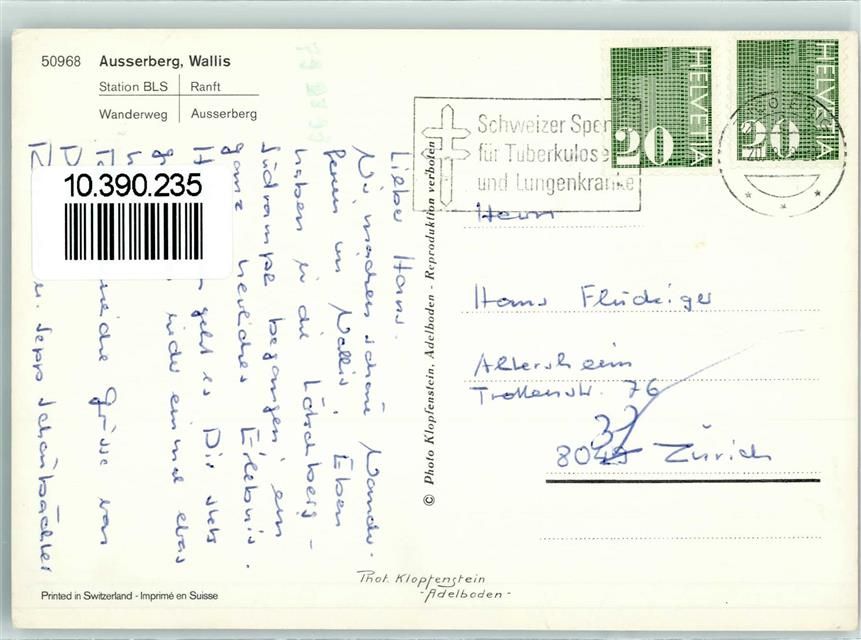 50968 Ausserberg, Wallis
Station BLS Ranft
Wanderweg Ausserberg
10.390.235
Lieber Hans.
Wir machen schöne Wander-
ferien im Wallis. Eben
haben wir die Lötschberg-
südrampe begangen, ein
ganz herrliches Erlebnis.
geht es Dir stets
wieder einmal etwas
Grüsse von
u. Sepp Schönbächler
© Photo Klopfenstein, Adelboden - Reproduktion verboten
Schweizer Spen
für Tuberkulose
und Lungenkranke
HELVETIA 20
HELVETIA 20
Herrn
Hans Flückiger
Altersheim
Trottenstr. 76
8049 Zürich
37
Phot. Klopfenstein
-Adelboden-
Printed in Switzerland - Imprimé en Suisse